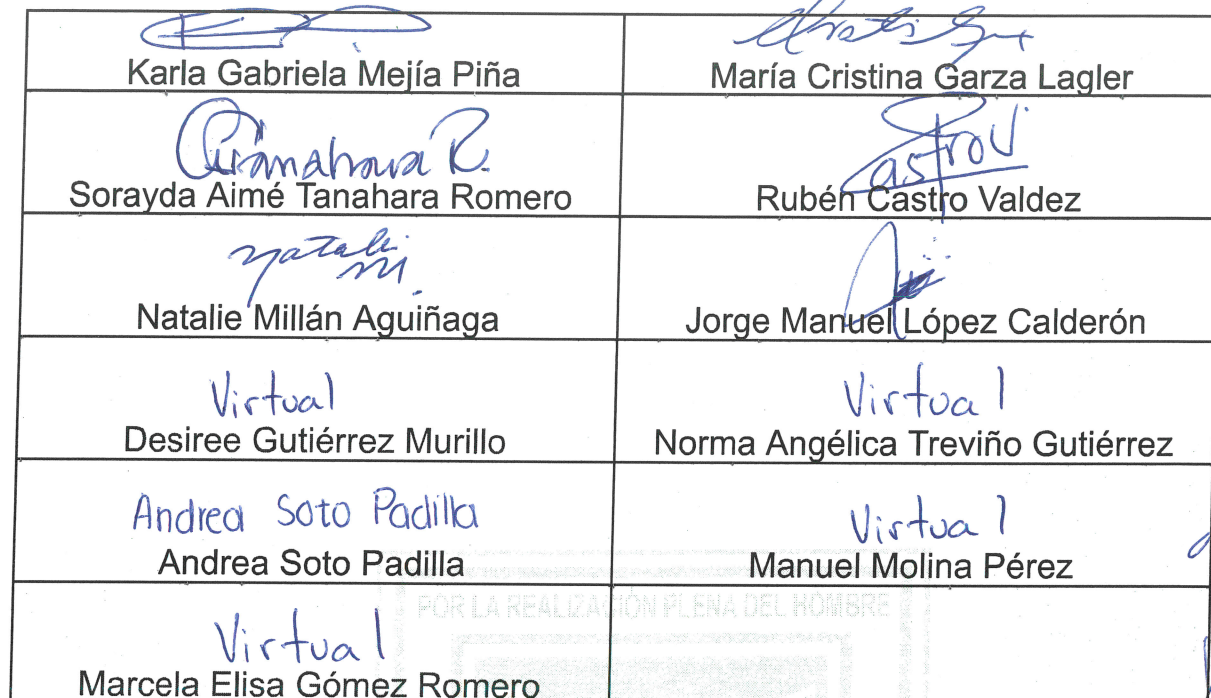 Karla Gabriela Mejía Piña
María Cristina Garza Lagler
Tanahara R.
Sorayda Aimé Tanahara Romero
Castro V
Rubén Castro Valdez
Natalie M.
Natalie Millán Aguiñaga
Jorge Manuel López Calderón
Virtual
Desiree Gutiérrez Murillo
Virtual
Norma Angélica Treviño Gutiérrez
Andrea Soto Padilla
Andrea Soto Padilla
Virtual
Manuel Molina Pérez
POR LA REALIZACIÓN PLENA DEL HOMBRE
Virtual
Marcela Elisa Gómez Romero